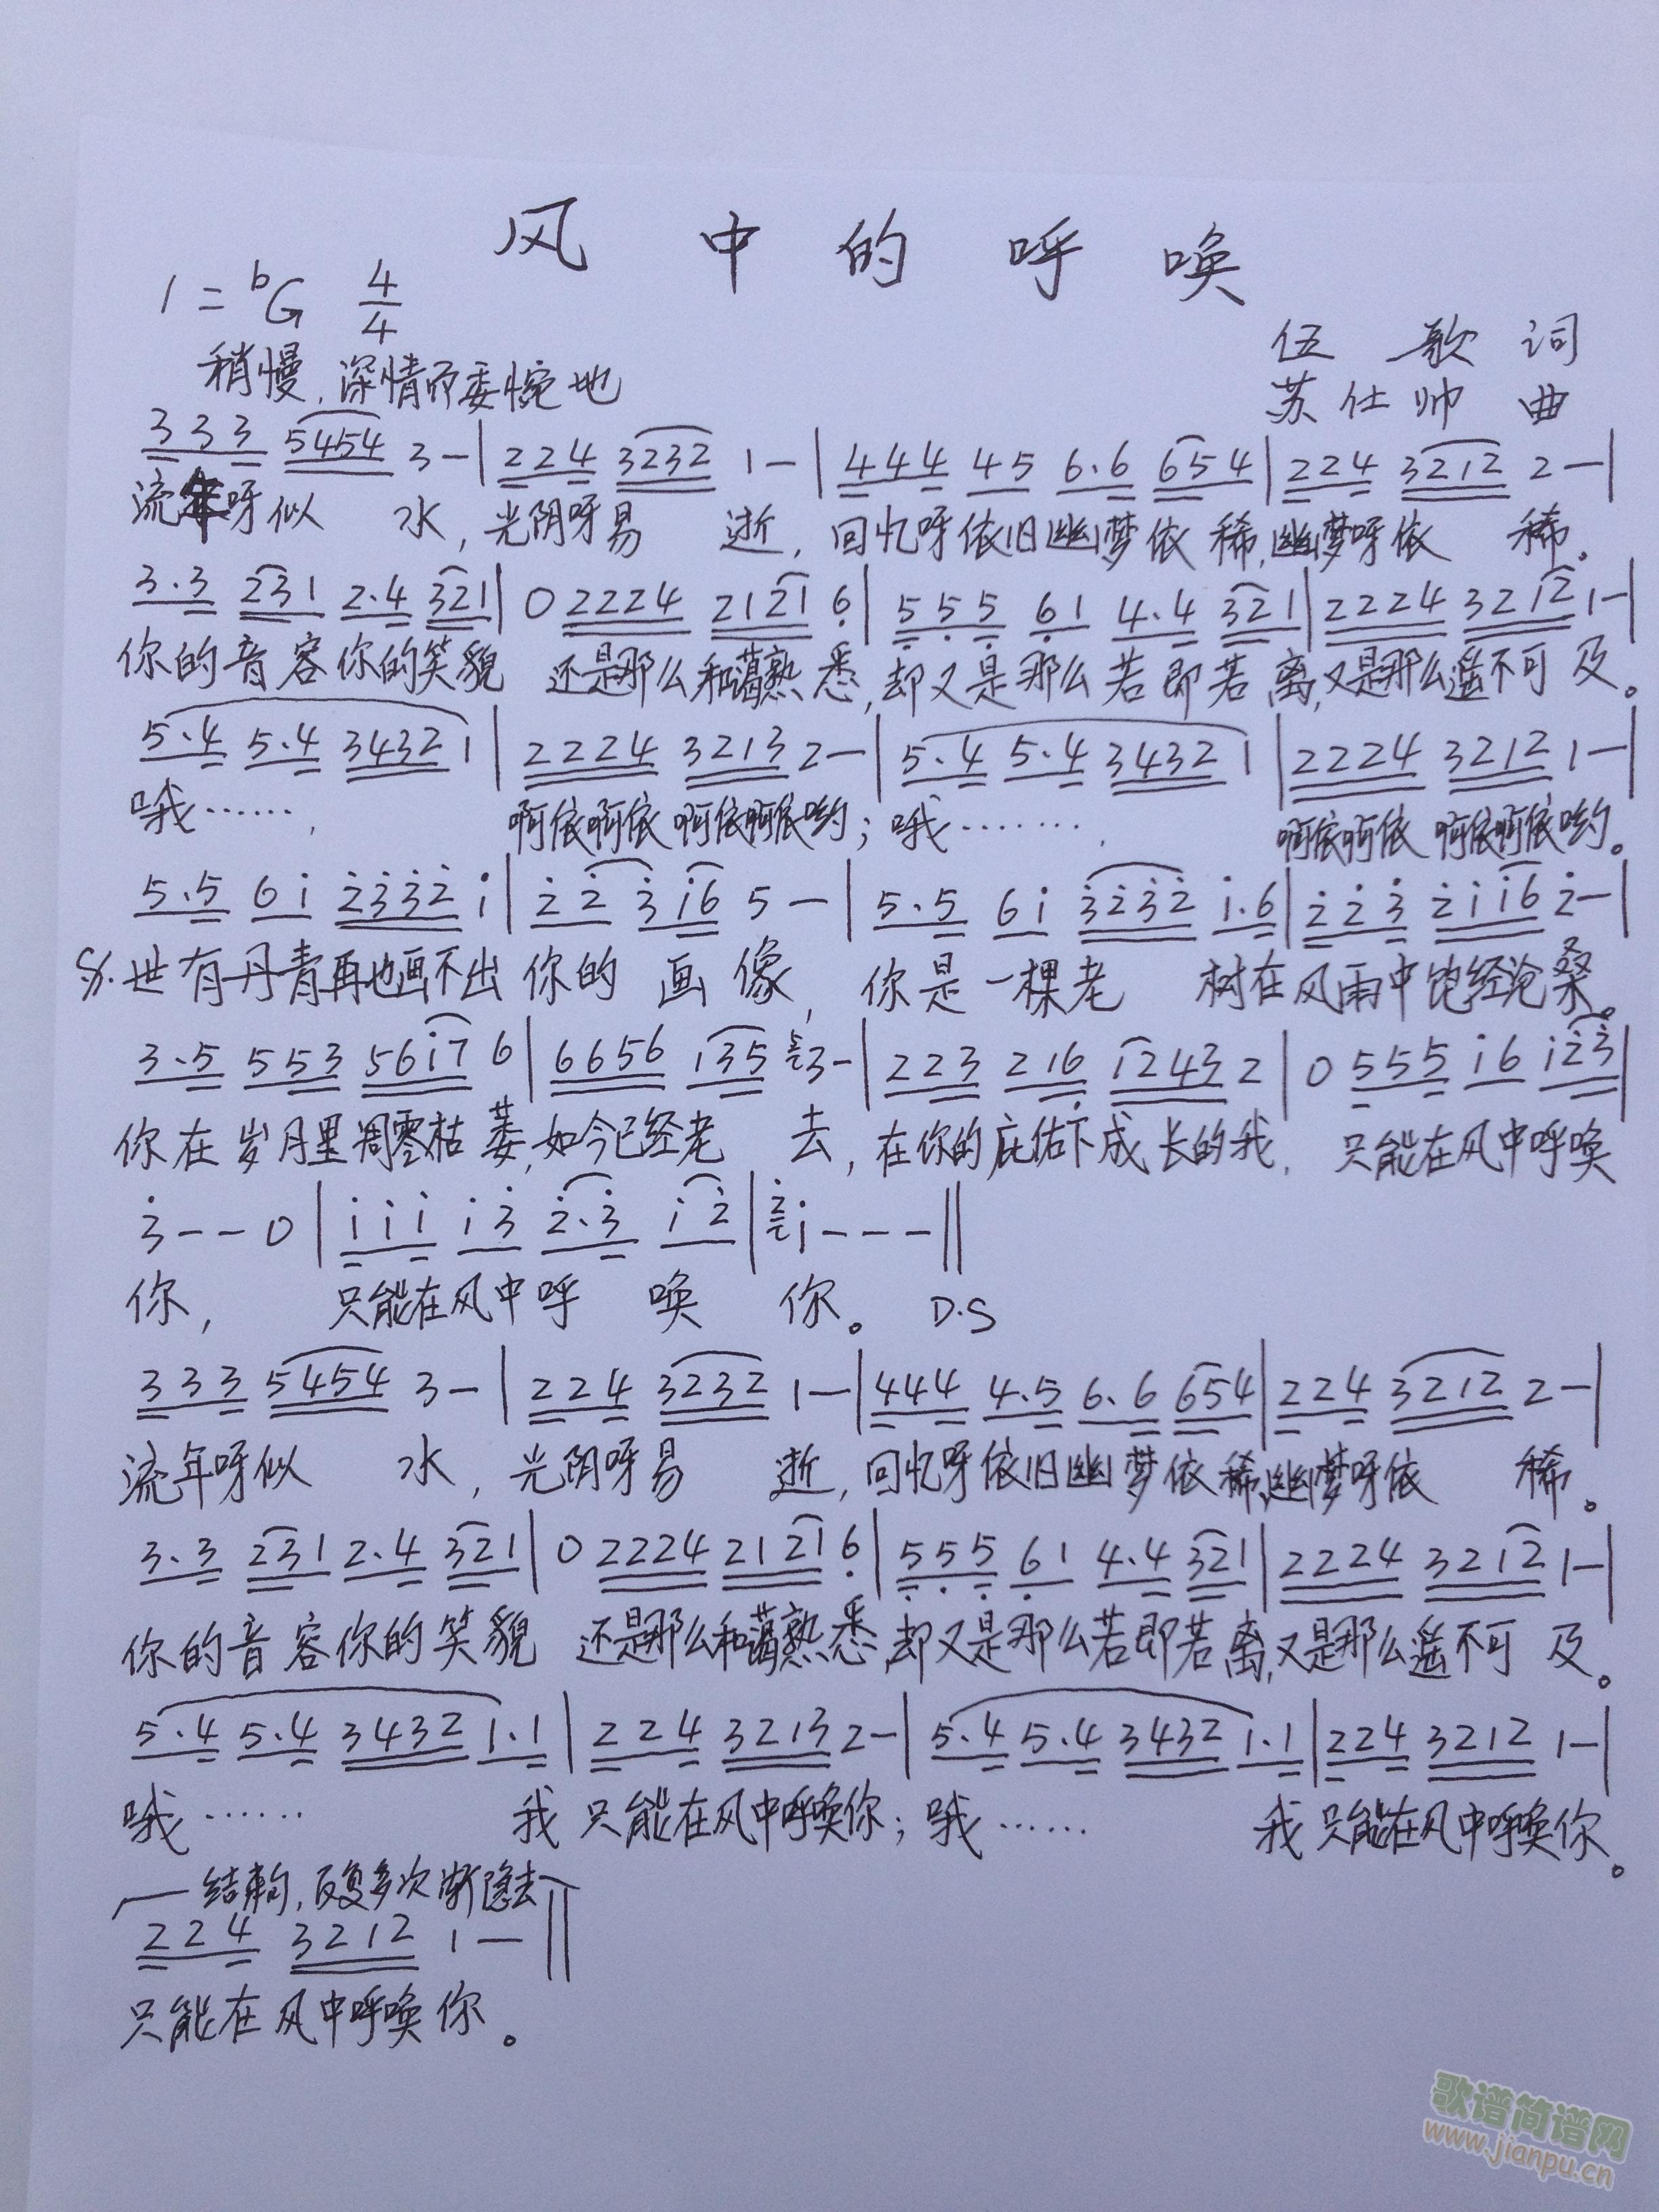 风中的呼唤
1=ᵇG 4/4
伍歌 词
稍慢,深情而委惋地
苏仕帅 曲
333 5454 3-|224 3232 1-|444 45 6.6 654|224 3212 2-|
流年呀似 水,光阴呀易 逝,回忆呀依旧幽梦依稀,幽梦呀依 稀。
3.3 231 2.4 321|0 2224 2121 6|555 61 4.4 321|2224 3212 1-|
你的音容你的笑貌 还是那么和蔼熟悉,却又是那么若即若离,又是那么遥不可及。
5.4 5.4 3432 1|2224 3213 2-|5.4 5.4 3432 1|2224 3212 1-|
哦……, 啊依啊依啊依啊依哟;哦……. 啊依啊依啊依啊依哟。
5.5 61 2332 1|2 2 3 16 5-|5.5 61 3232 1.6|223 2116 2-|
世有丹青再也画不出你的画像,你是一棵老 树在风雨中饱经沧桑。
3.5 553 5617 6|6656 135 3-|223 216 1243 2|0 555 16 123|
你在岁月里凋零枯萎,如今已经老 去,在你的庇佑下成长的我, 只能在风中呼唤
3--0|111 13 2.3 12|1---‖
你, 只能在风中呼 唤 你。 D.S
333 5454 3-|224 3232 1-|444 4.5 6.6 654|224 3212 2-|
流年呀似 水,光阴呀易 逝,回忆呀依旧幽梦依稀,幽梦呀依 稀。
3.3 231 2.4 321|0 2224 2121 6|555 61 4.4 321|2224 3212 1-|
你的音容你的笑貌 还是那么和蔼熟悉,却又是那么若即若离,又是那么遥不可及。
5.4 5.4 3432 1.1|224 3213 2-|5.4 5.4 3432 1.1|224 3212 1-|
哦…… 我只能在风中呼唤你;哦…… 我只能在风中呼唤你。
结束句,反复多次渐隐去
224 3212 1-‖
只能在风中呼唤你。
歌谱简谱网
www.jianpu.cn